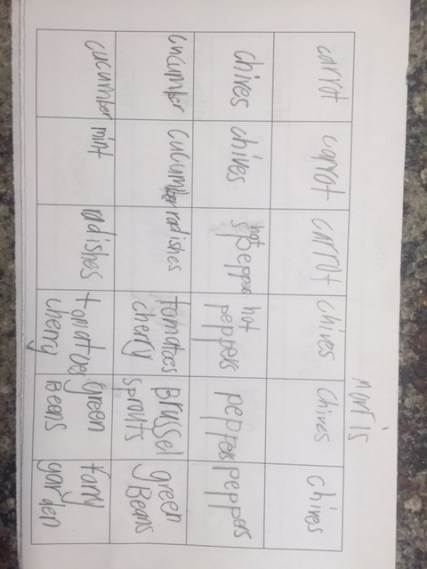 carrot carrot carrot chives chives chives
chives chives hot peppers hot peppers peppers peppers
cucumber cucumber radishes tomatoes Brussel green
cherry sprouts Beans
cucumber mint radishes tomatoes green
cherry Beans garden